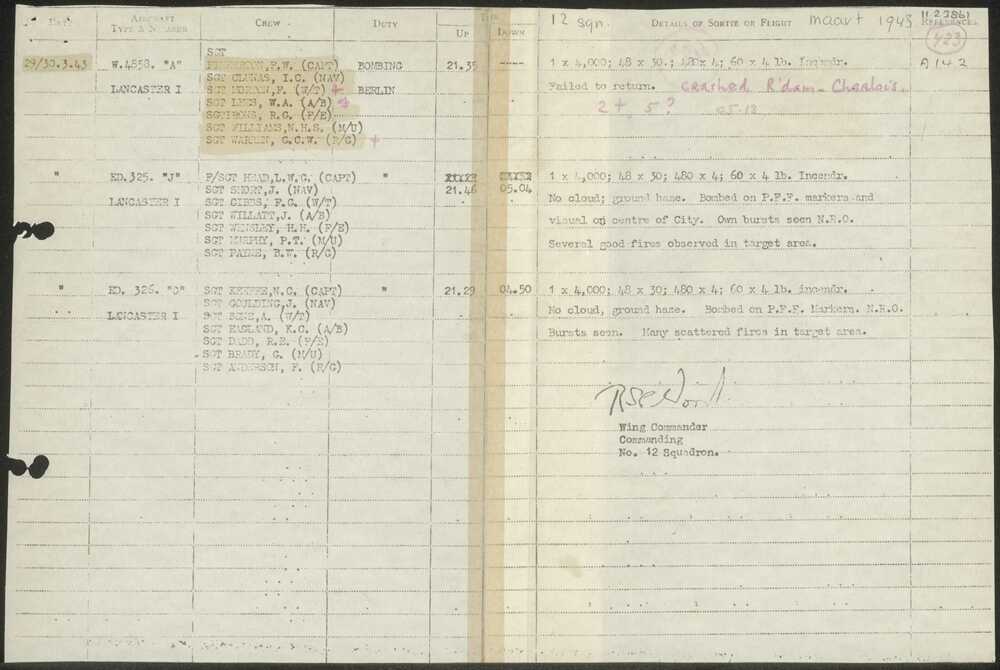 12 sqn. DETAILS OF SORTIE OR FLIGHT maart 1943
DATE AIRCRAFT TYPE & NUMBER CREW DUTY TIME UP DOWN REFERENCES
423
A 142
29/30.3.43 W.4858. "A" SGT F.W. (CAPT) BOMBING 21.35 ---- 1 x 4,000; 48 x 30.; 480x 4; 60 x 4 lb. Incendr.
SGT CLEMAS, I.C. (NAV)
LANCASTER I SGT F. (W/T) + BERLIN Failed to return. crashed R'dam-Charlois.
SGT LEES, W.A. (A/B) + 2 + 5? 05-12
R.G. (F/E)
SGT WILLIAMS,N.H.S. (M/U)
SGT WARREN, G.C.W. (R/G) +
" ED.325. "J" F/SGT HEAD,L.W.G. (CAPT) " 1 x 4,000; 48 x 30; 480 x 4; 60 x 4 lb. Incendr.
SGT SHORT,J. (NAV) 21.46 05.04
LANCASTER I SGT GIBBS, F.G. (W/T) No cloud; ground haze. Bombed on P.F.F. markers and
SGT WILLATT,J. (A/B) visual on centre of City. Own bursts seen N.R.O.
SGT WENSLEY, H.H. (F/E)
SGT MURPHY, P.T. (M/U) Several good fires observed in target area.
SGT PAYNE, B.W. (R/G)
" ED. 326. "O" SGT KEEFFE,N.C. (CAPT) " 21.29 04.50 1 x 4,000; 48 x 30; 480 x 4; 60 x 4 lb. incendr.
SGT GOULDING,J. (NAV) No cloud, ground haze. Bombed on P.F.F. Markers. N.R.O.
LANCASTER I SGT A. (W/T)
SGT K.C. (A/B) Bursts seen. Many scattered fires in target area.
SGT DADD, R.E. (F/E)
SGT BRADY, G. (M/U)
SGT ANDERSON, F. (R/G)
Wing Commander
Commanding
No. 12 Squadron.